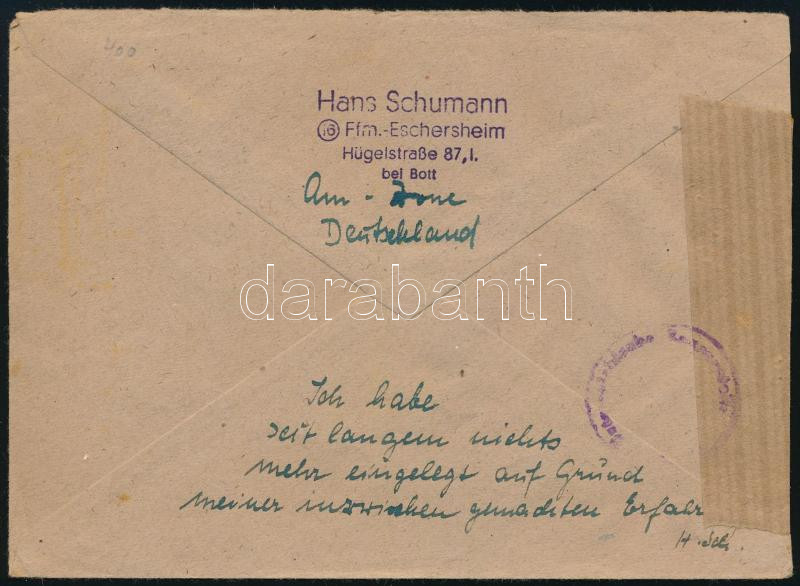 400
Hans Schumann
16 Ffm.-Eschersheim
Hügelstraße 87, I.
bei Bott
Am - Zone
Deutschland
darabanth
Ich habe
seit langem nichts
mehr eingelegt auf Grund
meiner inzwischen gemachten Erfahr
H. Sch.